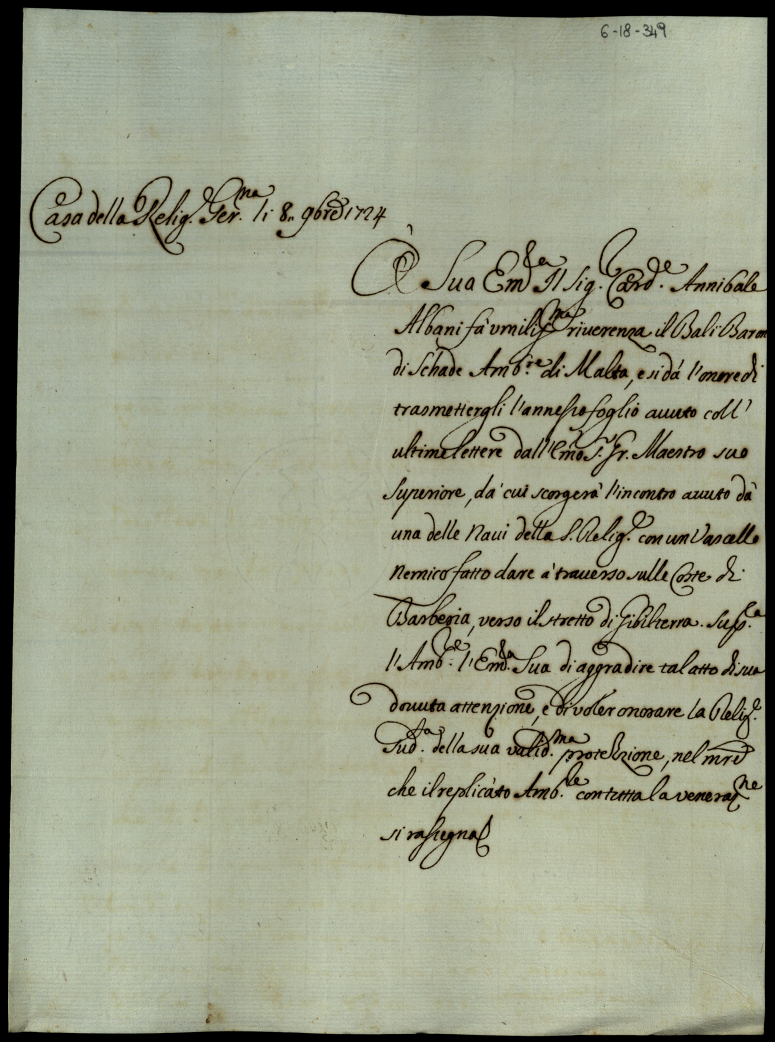 6-18-349
Casa della Relig.e Ger.ma li 8 9bre 1724
A Sua Em.za Il Sig.r Card.le Annibale
Albani fà vmiliss.ma riuerenza il Bali Baron
di Schade Amb.re di Malta, e si dà l'onore di
trasmettergli l'annesso foglio auuto coll'
ultime lettere dall'Emo S. Gr. Maestro suo
Superiore, da cui scorgerà l'incontro auuto dà
una delle Naui della S. Relig.e con un Vascello
Nemico fatto dare à trauerso sulle Coste di
Barberia, verso il stretto di Gibilterra. Supp.ca
l'Amb.re l'Em.za Sua di aggradire tal atto di sua
douuta attenzione, e di voler onorare la Relig.e
Sud.ta della sua valid.ma protezzione, nel mre
che il replicato Amb.re con tutta la veneraz.ne
si rassegna